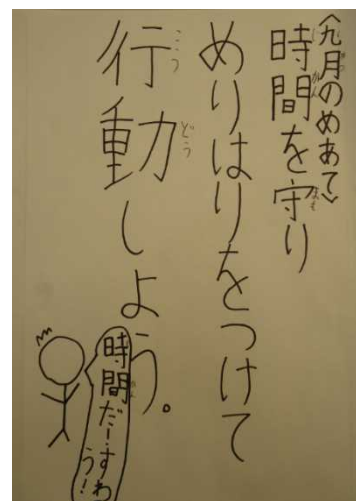 〈九月のめあて〉
時間を守り
めりはりをつけて
行動しよう。
時間だー!すわ
ろう!